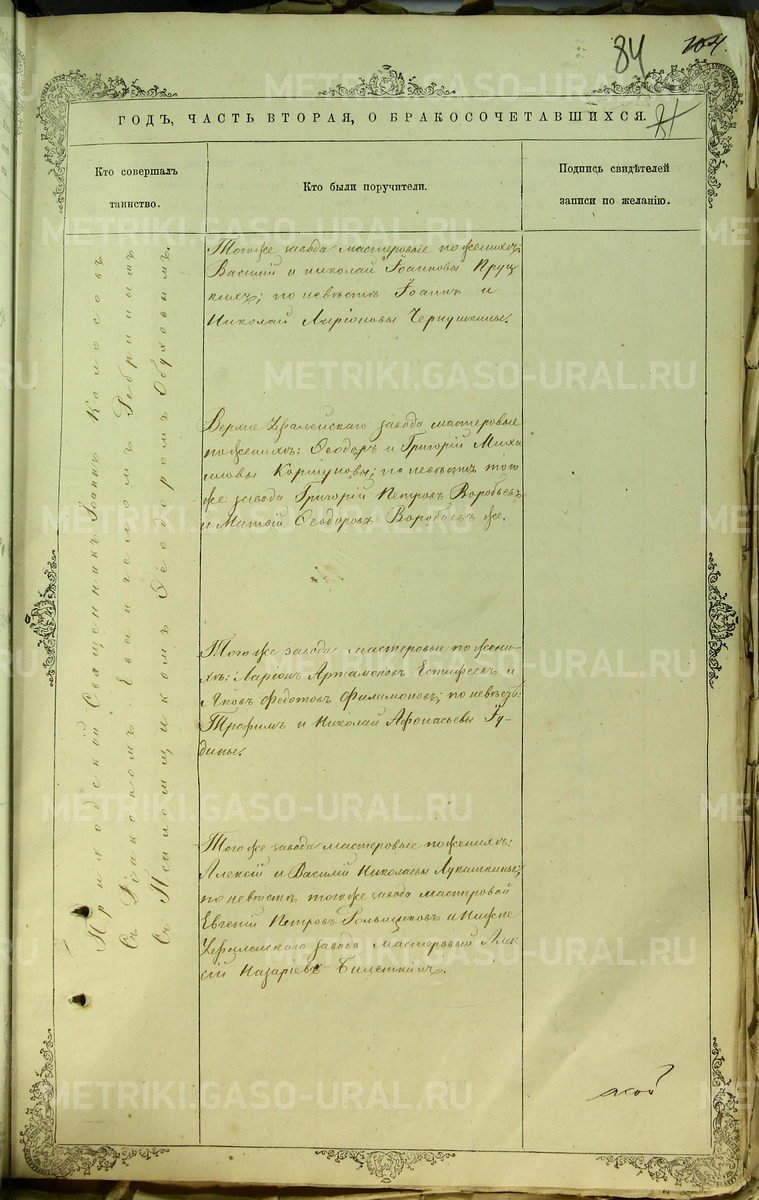 84
104.
ГОДЪ, ЧАСТЬ ВТОРАЯ, О БРАКОСОЧЕТАВШИХСЯ.
Кто совершалъ
таинство.
Кто были поручители.
Подпись свидѣтелей
записи по желанію.
Приходской Священникъ Іоаннъ Колосовъ
Съ Діакономъ Евангеломъ Ребринымъ
Съ Псаломщикомъ Ѳеодоромъ Обуховымъ.
Того же завода мастеровые по женихѣ:
Василій и николай Іоанновы Круц
кихъ; по невѣстѣ Іоаннъ и
Николай Ларіоновы Чернушкины.
Верхне Уфалейскаго завода мастеровые
по женихѣ: Ѳеодоръ и Григорій Миха
иловы Коршуновы; по невѣстѣ того
же завода Григорій Петровъ Воробьевъ
и Матѳій Ѳеодоровъ Воробьевъ же.
Того же завода мастеровые по жени-
хѣ: Ларіонъ Артамоновъ Естифеевъ и
Яковъ Федотовъ Филимоновъ; по невѣстѣ:
Трофимъ и Николай Афонасьевы Іу-
дины.
Того же завода мастеровые по женихѣ:
Алексій и Василій Николаевы Лукашкины;
по невѣстѣ того же завода мастеровой
Евгеній Петровъ Гольщиковъ и Нижне
Уфалейскаго завода мастеровый Алек
сій Назаріевъ Билеткинъ.
METRIKI.GASO-URAL.RU